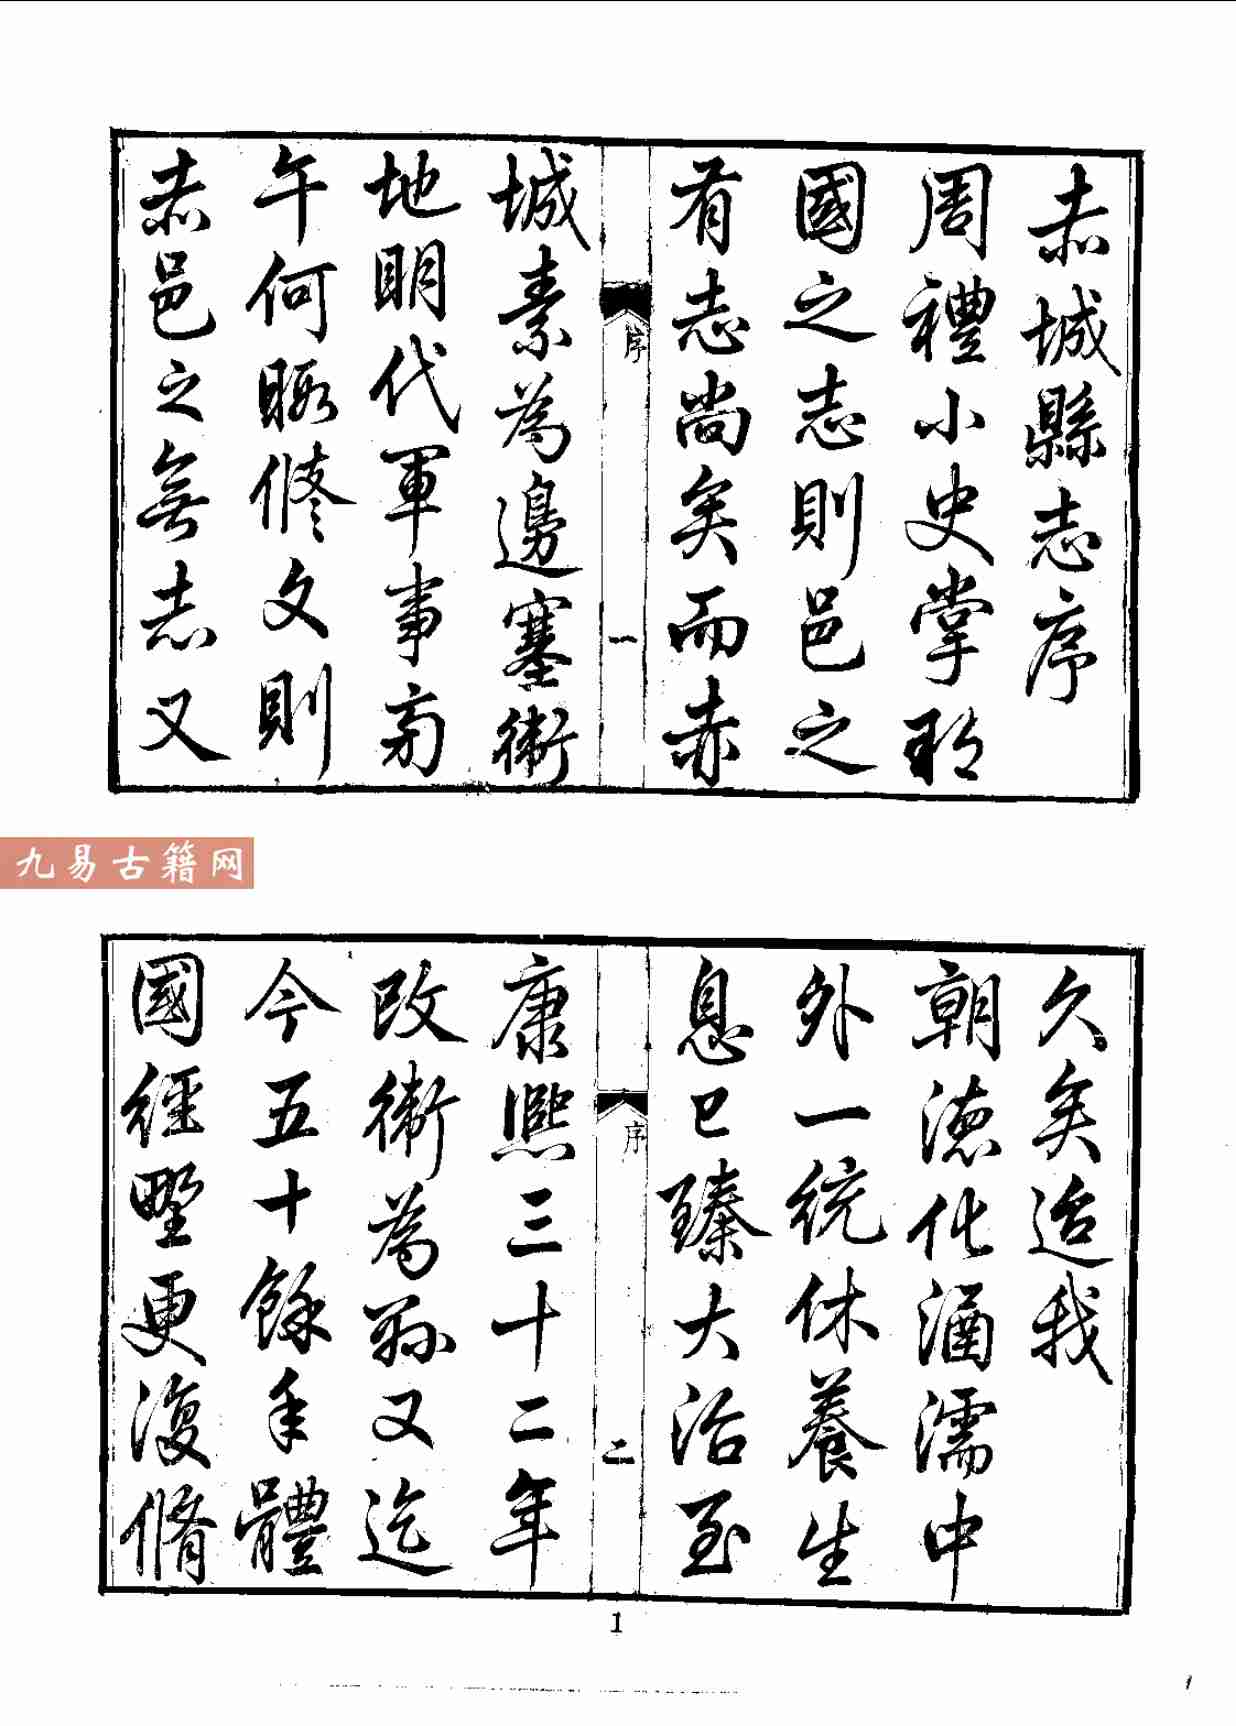 赤城縣志序
周禮小史掌邦
國之志則邑之
有志尚矣而赤
序 一
城素為邊塞衛
地明代軍事旁
午何暇修文則
赤邑之無志又
九易古籍网
久矣迨我
朝德化涵濡中
外一統休養生
息已臻大治至
序 二
康熙三十二年
改衛為縣又迄
今五十餘年體
國經野更復脩
1
1